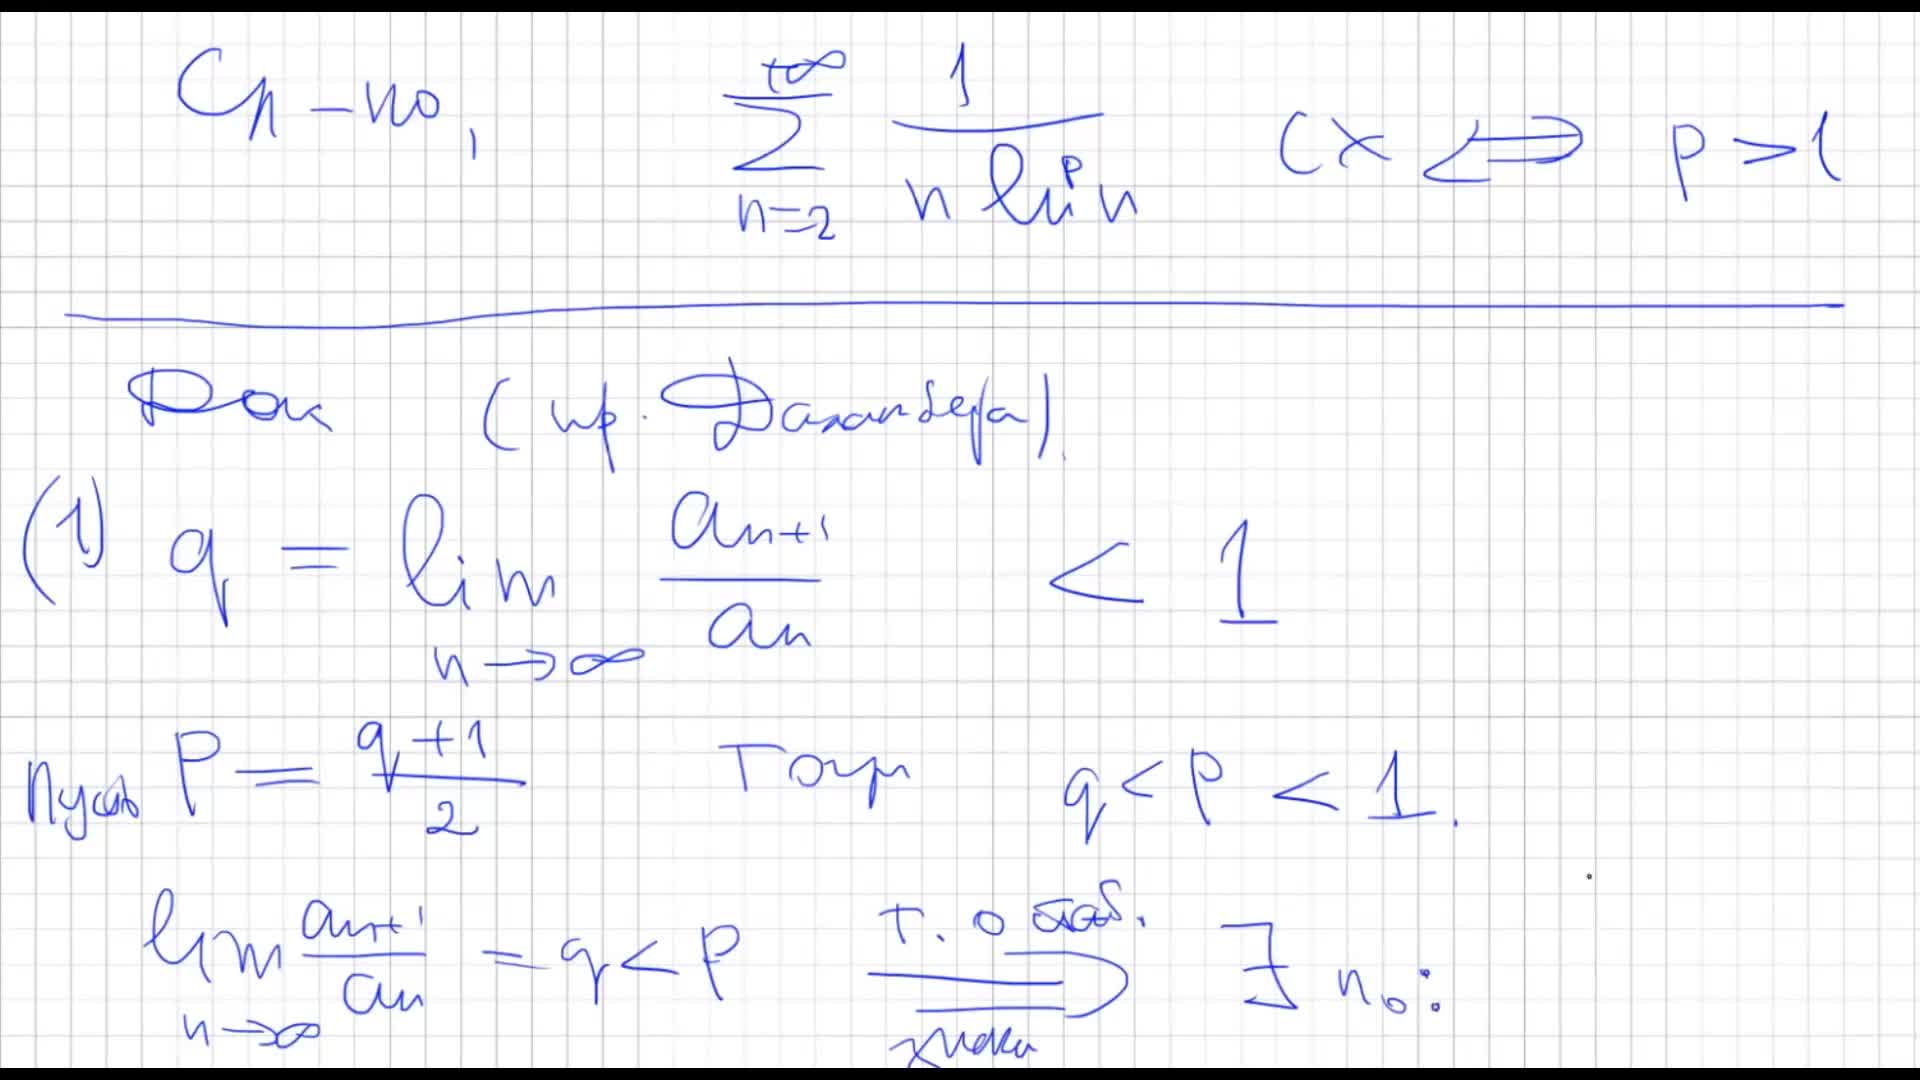 Сл-но, $\sum_{n=2}^{+\infty} \frac{1}{n \ln^p n}$ сх $\Longleftrightarrow$ p > 1
Док (пр. Даламбера).
(1) $q = \lim_{n \to \infty} \frac{a_{n+1}}{a_n} < 1$
Пусть $p = \frac{q+1}{2}$ Тогда $q < p < 1$.
$\lim_{n \to \infty} \frac{a_{n+1}}{a_n} = q < p$ $\Longrightarrow$ т. о стаб. знака $\exists n_0$: